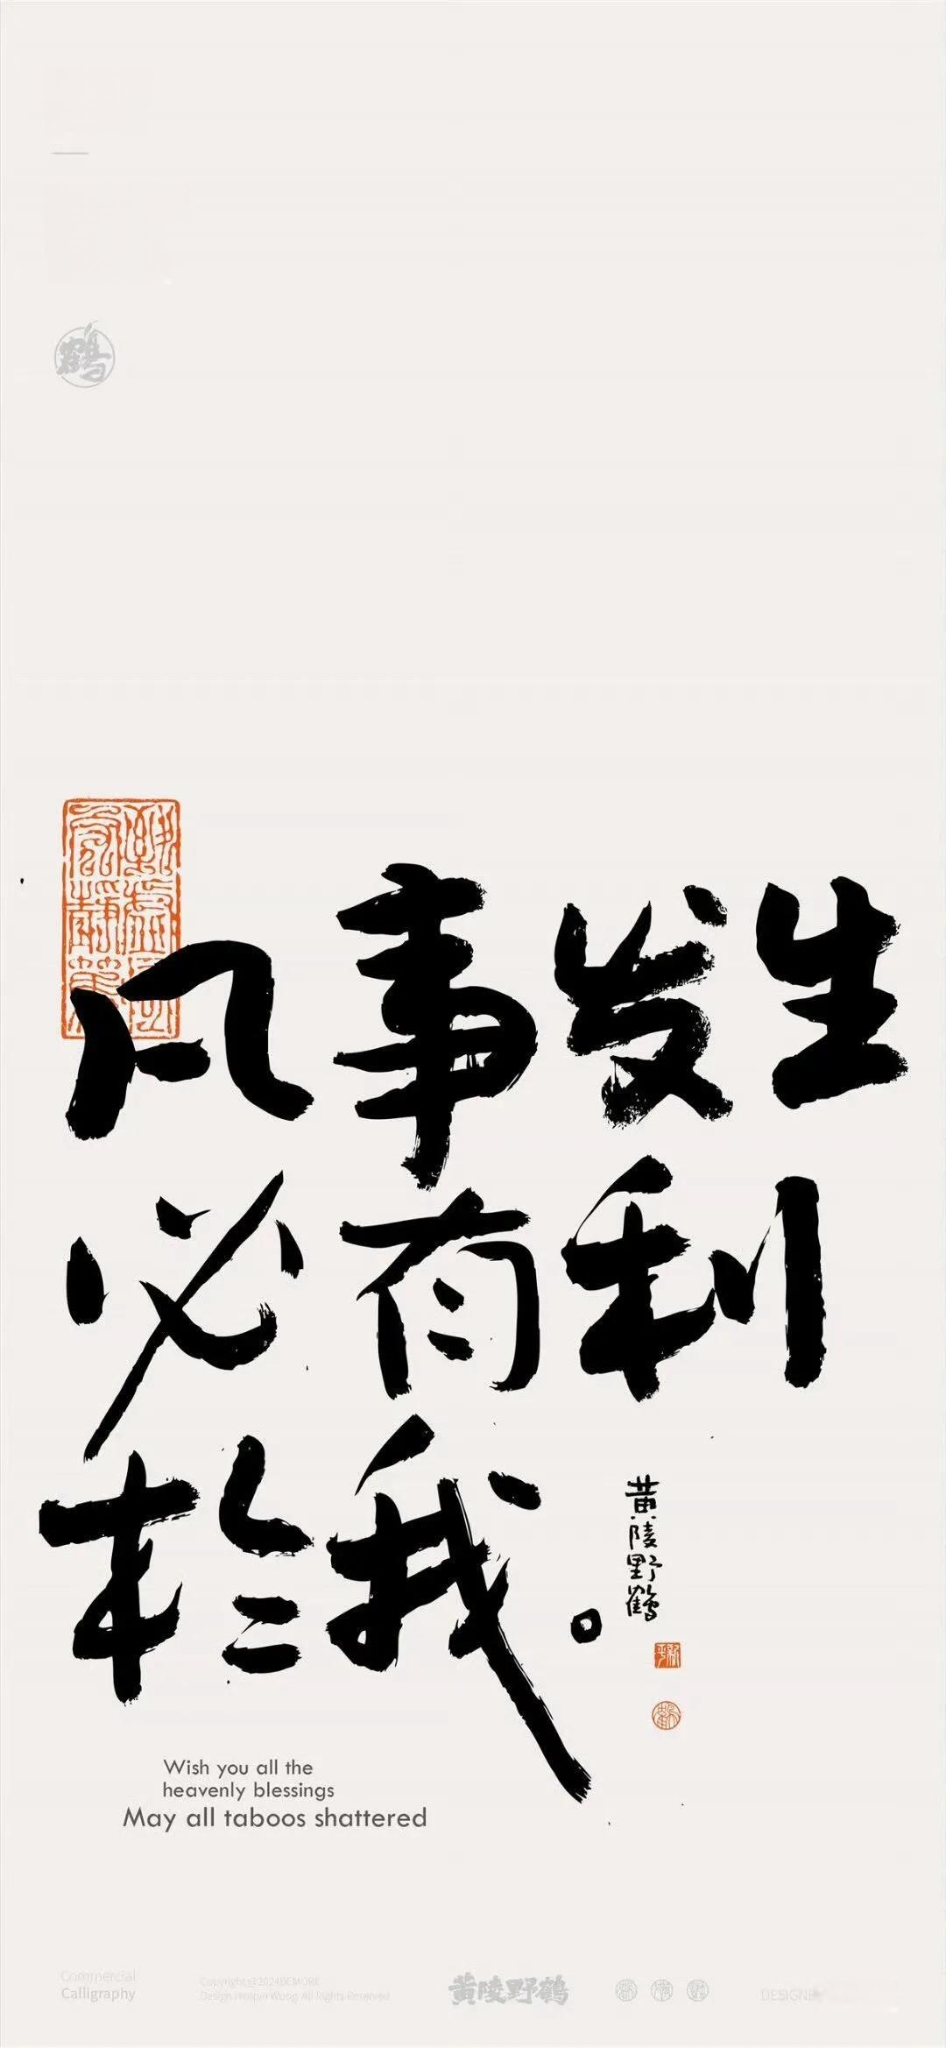 鶴
凡事发生
必有利
於我。
黄陵野鹤
Wish you all the
heavenly blessings
May all taboos shattered
Commercial
Calligraphy
Copyright@2024DEMORE
All Rights Reserved
黄陵野鹤